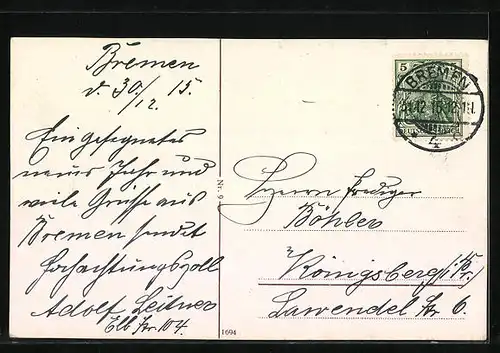 Bremen
d. 30./12. 15.
Ein gesegnetes
neues Jahr und
viele Grüsse aus
Bremen sendet
hochachtungsvoll
Adolf Leitner
Elb Str 104
Nr. 9
1694
5
BREMEN
4
Herrn Prediger
Böhler
Königsberg i/Pr.
Lawendel Str 6.